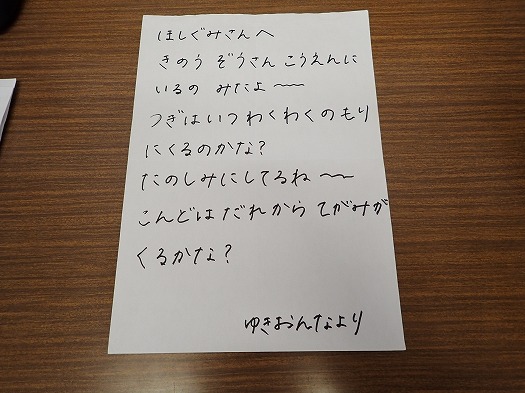 ほしぐみさんへ
きのう ぞうさん こうえんに
いるの みたよ〜〜
つぎはいつわくわくのもり
にくるのかな?
たのしみにしてるね〜〜
こんどは だれから てがみが
くるかな?
ゆきおんなより